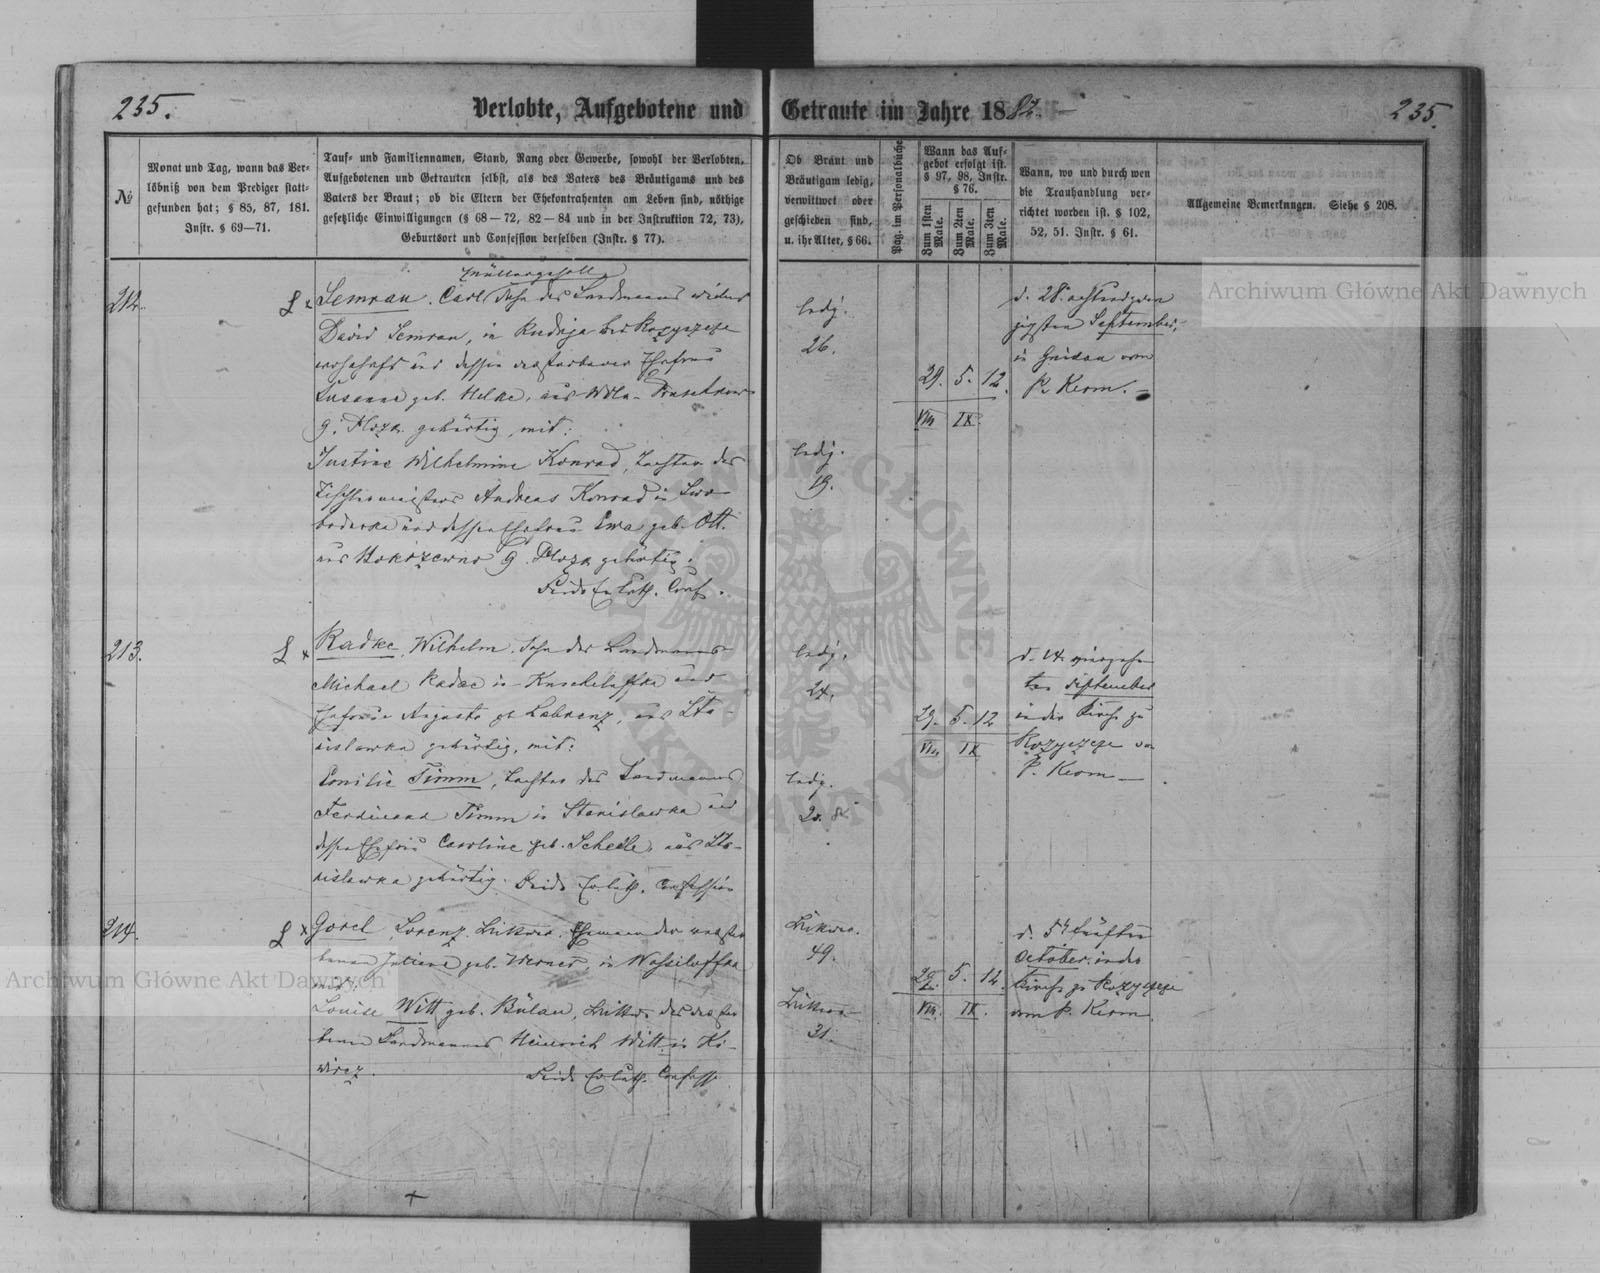 235.
Verlobte, Aufgebotene und Getraute im Jahre 1882.
235.
№
Monat und Tag, wann das Ver-
löbniß von dem Prediger statt-
gefunden hat; § 85, 87, 181.
Instr. § 69—71.
Tauf- und Familiennamen, Stand, Rang oder Gewerbe, sowohl der Verlobten,
Aufgebotenen und Getrauten selbst, als des Vaters des Bräutigams und des
Vaters der Braut; ob die Eltern der Ehekontrahenten am Leben sind, nöthige
gesetzliche Einwilligungen (§ 68—72, 82—84 und in der Instruktion 72, 73),
Geburtsort und Confession derselben (Instr. § 77).
Ob Braut und
Bräutigam ledig,
verwittwet oder
geschieden sind,
u. ihr Alter, § 66.
Pag. im Personalbuche
Wann das Auf-
gebot erfolgt ist.
§ 97, 98, Instr.
§ 76.
Zum 1sten Male.
Zum 2ten Male.
Zum 3ten Male.
Wann, wo und durch wen
die Trauhandlung ver-
richtet worden ist. § 102,
52, 51. Instr. § 61.
Allgemeine Bemerkungen. Siehe § 208.
212.
Müllergesell
Semrau, Carl Sohn des Landmanns
David Semrau, in Rudnja bei Rozyszcze
und dessen verstorbener Ehefrau
Susanna geb. Helke, aus
G. Plozk gebürtig, mit:
Justine Wilhelmine Konrad, Tochter des
Tischlermeisters Andreas Konrad in
und dessen Ehefrau Ewa geb. Ott.
aus G. Plozk gebürtig.
Beide Ev. luth. Conf.
ledig.
26.
ledig.
19.
29. 5. 12.
VIII IX.
d. 28. achtundzwan
zigsten September,
in
P. Kerm.
213.
Radke, Wilhelm, Sohn des Landmanns
Michael Radke in und
Ehefrau Auguste geb. Labrenz, aus Sta-
nislawka gebürtig, mit:
Emilie Timm, Tochter des Landmanns
Ferdinand Timm in Stanislawka und
dessen Ehefrau Caroline geb. Schelle, aus Sta-
nislawka gebürtig. Beide Ev. luth. Confession
ledig.
24.
ledig.
29. 5. 12
VIII IX
d. 14. vierzehn
ten September
in der Kirche zu
Rozyszcze von
P. Kerm
214.
Gorel, Lorenz, Wittwer, Ehemann der verstor
benen Juliane geb. Werner, in Wassiloffka
mit:
Louise Witt geb. Bülau, Wittwe des verstor
benen Landmannes Heinrich Witt in Ki-
wircz.
Beide Ev. luth. Confess
Wittwer.
49.
Wittwe
31.
29. 5. 12.
VIII. IX.
d. 5t fünften
October in der
Kirche zu Rozyszcze
vom P. Kerm.
Archiwum Główne Akt Dawnych
Archiwum Główne Akt Dawnych
ARCHIWUM GŁÓWNE AKT DAWNYCH